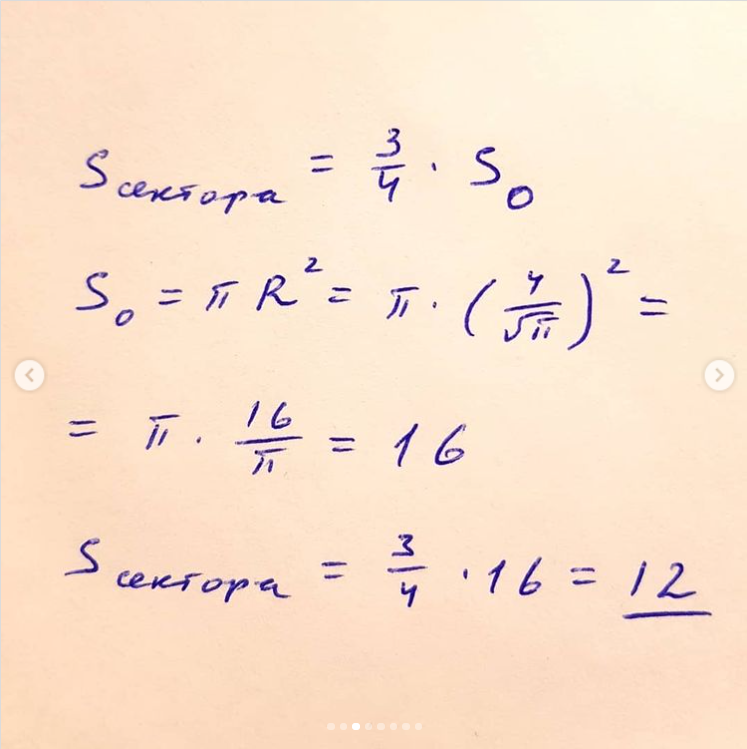 Sсектора = 3/4 · S₀
S₀ = πR² = π · (4/√π)² =
= π · 16/π = 16
Sсектора = 3/4 · 16 = 12